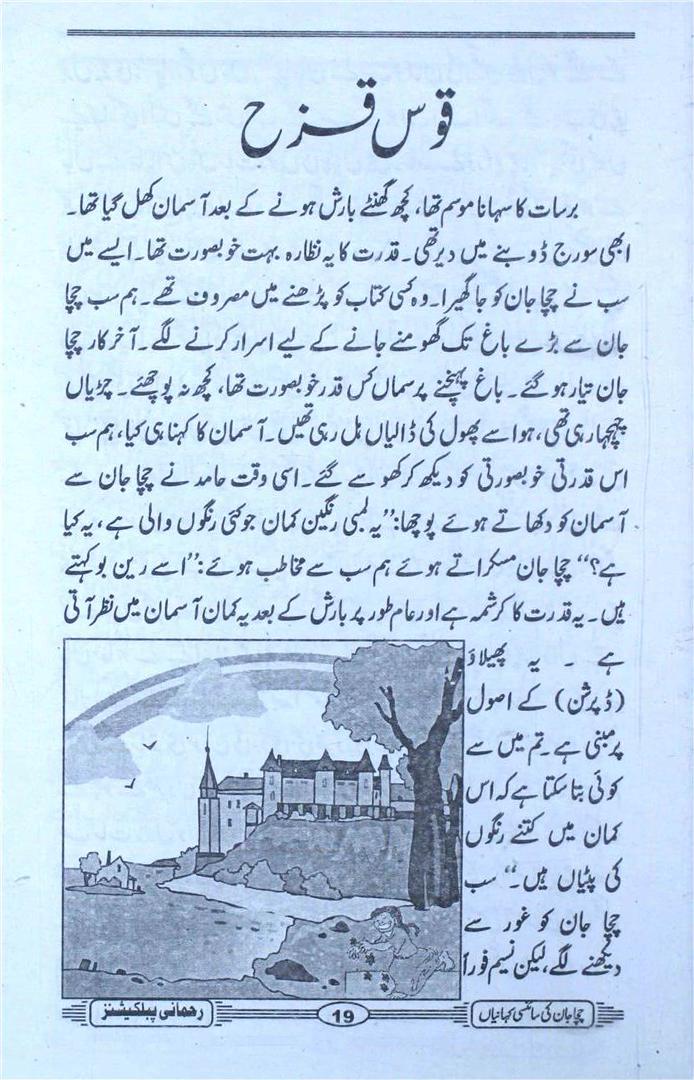 قوس قزح
برسات کا سہانا موسم تھا، کچھ گھنٹے بارش ہونے کے بعد آسمان کھل گیا تھا۔
ابھی سورج ڈوبنے میں دیر تھی۔ قدرت کا یہ نظارہ بہت خوبصورت تھا۔ ایسے میں
سب نے چچا جان کو جا گھیرا۔ وہ کسی کتاب کو پڑھنے میں مصروف تھے۔ ہم سب چچا
جان سے بڑے باغ تک گھومنے جانے کے لیے اسرار کرنے لگے۔ آخر کار چچا
جان تیار ہو گئے۔ باغ پہنچنے پر سماں کس قدر خوبصورت تھا، کچھ نہ پوچھئے۔ چڑیاں
چہچہا رہی تھی، ہوا سے پھول کی ڈالیاں ہل رہی تھیں۔ آسمان کا کہنا ہی کیا، ہم سب
اس قدرتی خوبصورتی کو دیکھ کر کھو سے گئے۔ اسی وقت حامد نے چچا جان سے
آسمان کو دکھاتے ہوئے پوچھا: ”یہ لمبی رنگین کمان جو کئی رنگوں والی ہے، یہ کیا
ہے؟“ چچا جان مسکراتے ہوئے ہم سب سے مخاطب ہوئے: ”اسے رین بو کہتے
ہیں۔ یہ قدرت کا کرشمہ ہے اور عام طور پر بارش کے بعد یہ کمان آسمان میں نظر آتی
ہے ۔ یہ پھیلاؤ
(ڈپرشن) کے اصول
پر مبنی ہے۔ تم میں سے
کوئی بتا سکتا ہے کہ اس
کمان میں کتنے رنگوں
کی پٹیاں ہیں۔“ سب
چچا جان کو غور سے
دیکھنے لگے، لیکن نسیم فوراً
چچا جان کی سائنسی کہانیاں
19
رحمانی پبلکیشنز